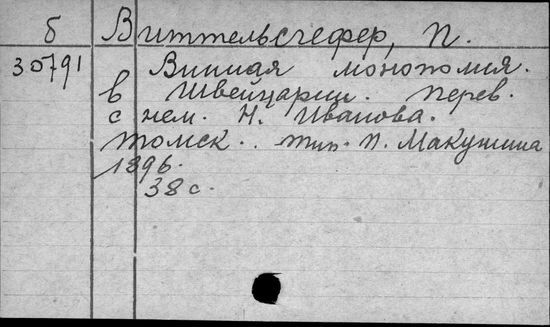 б Виттельсгефер, П.
30791 Винная монополия.
в Швейцарии. Перев.
с нем. Н. Иванова.
Томск.. тип. П. Макушина
1896.
38 с.